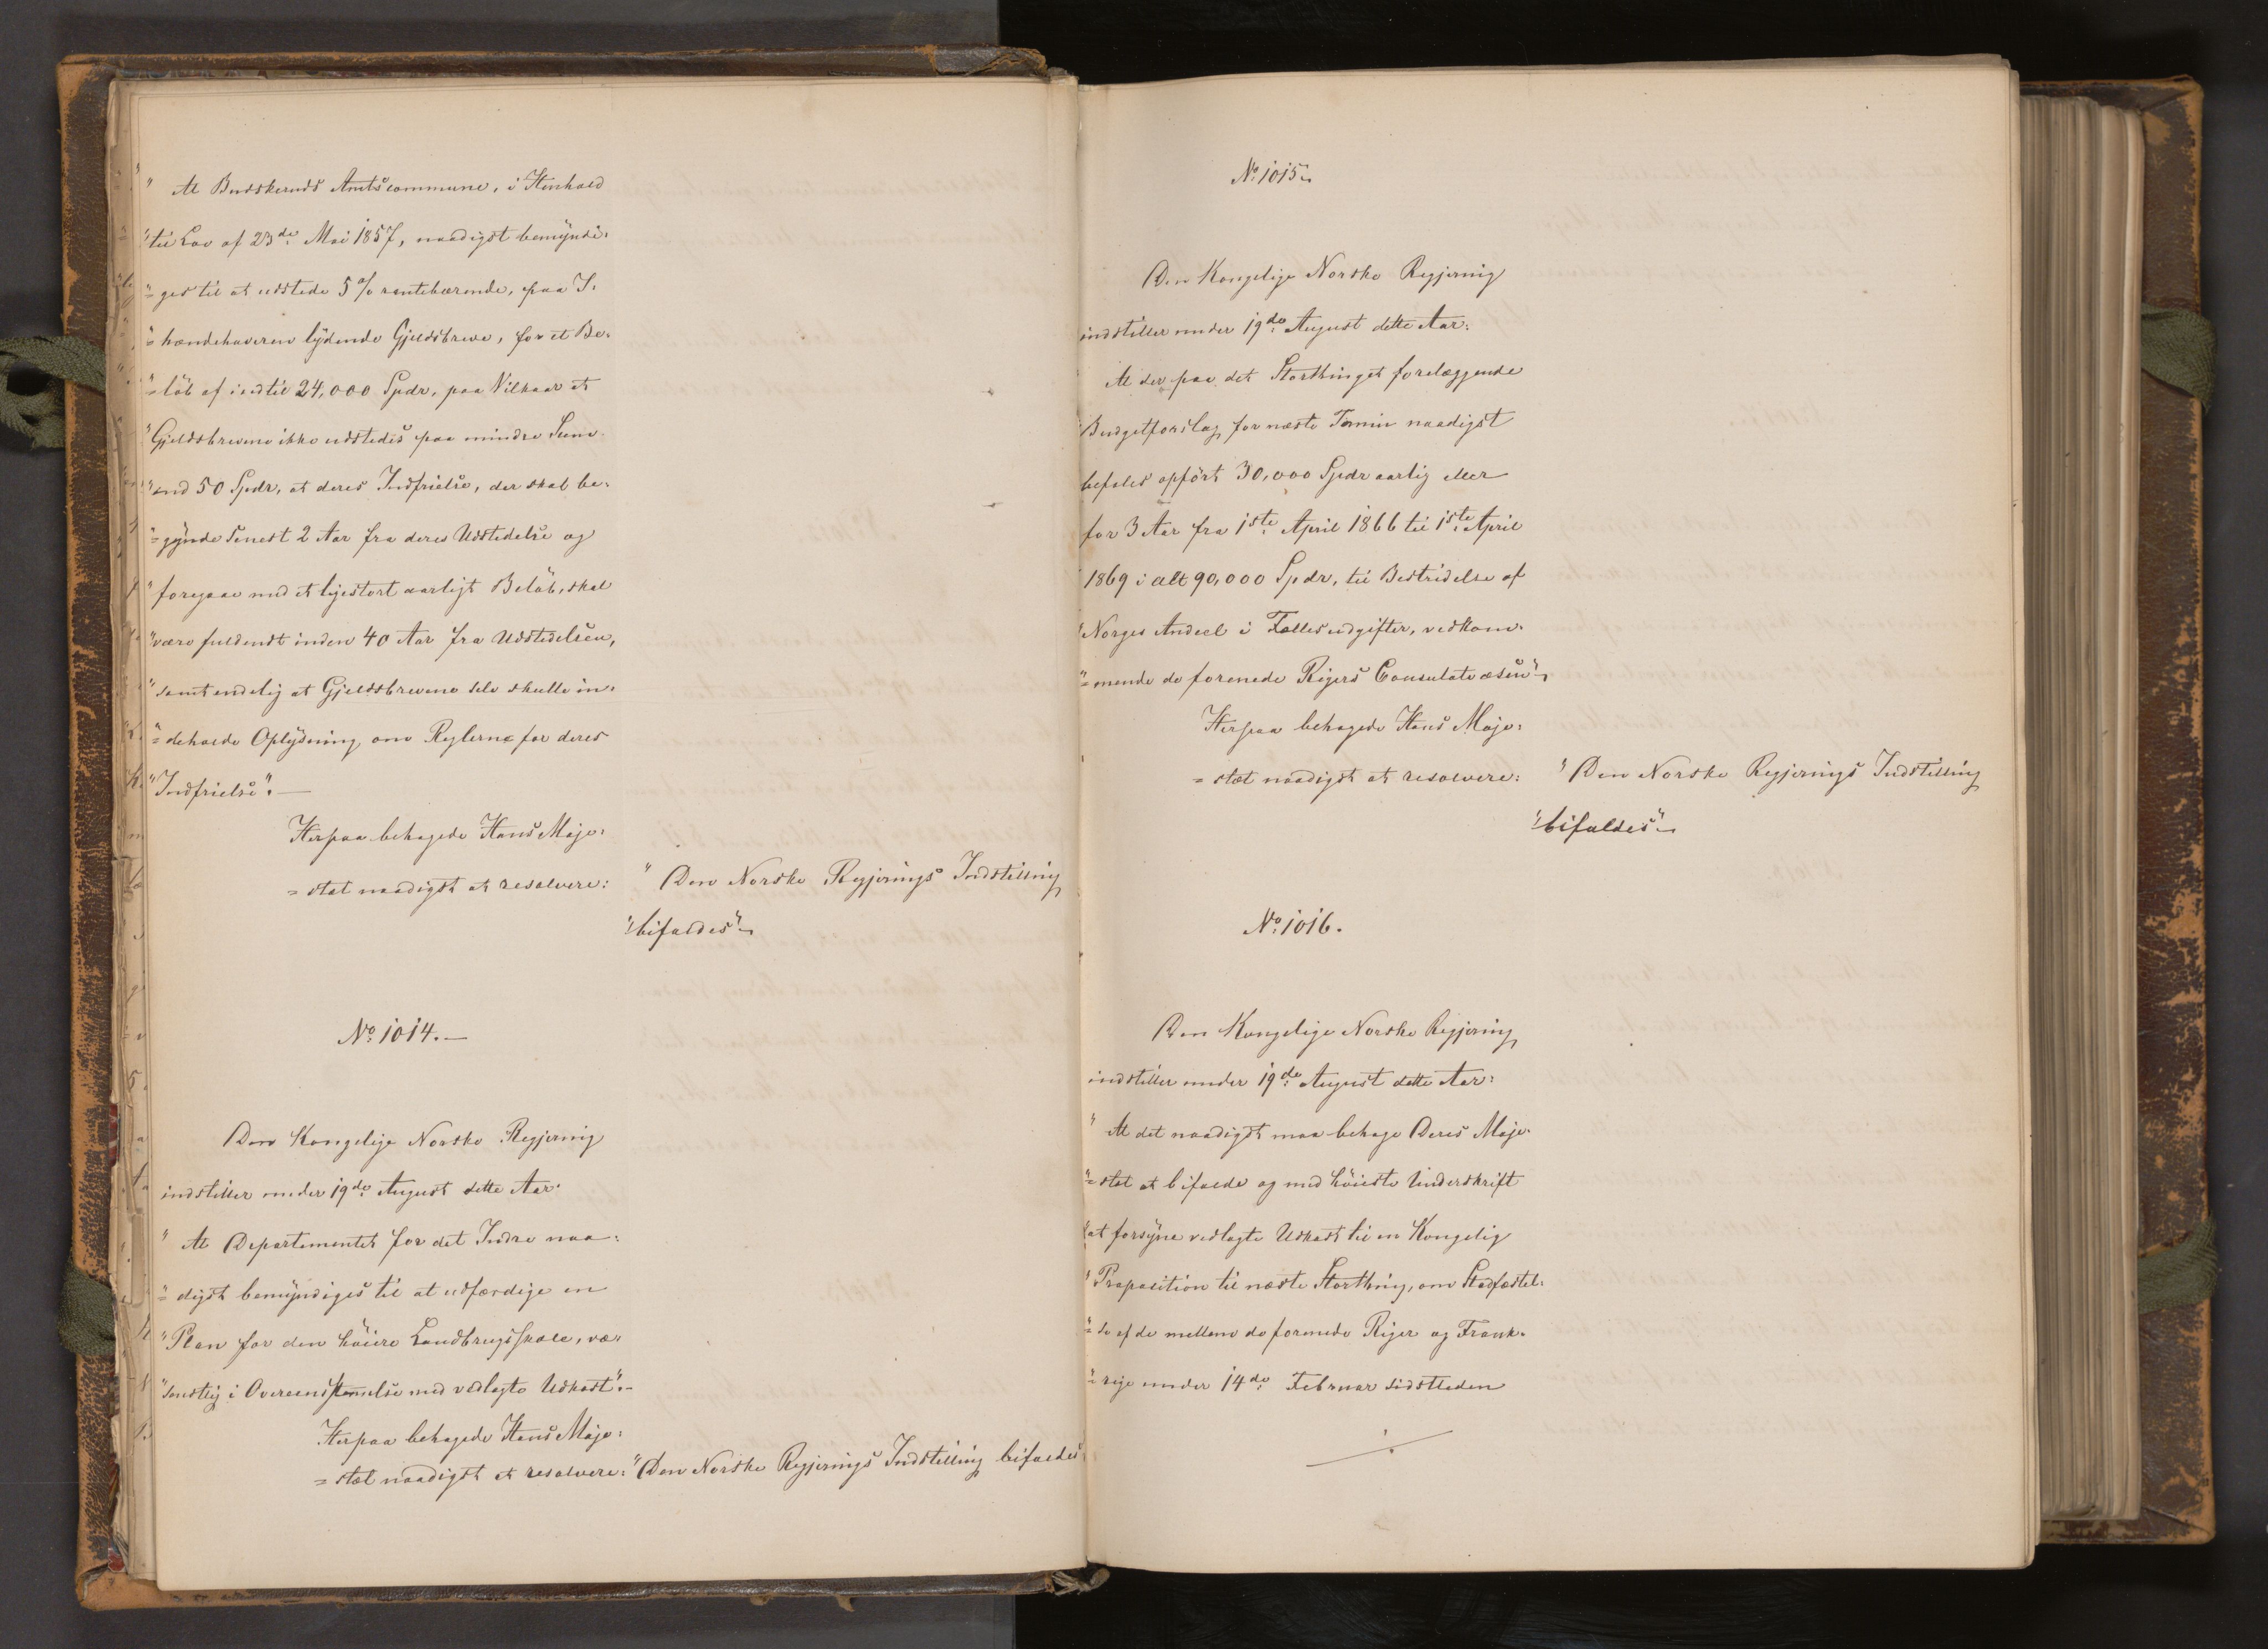 " At Buskeruds Amtscommune, i Henhold
" til Lov af 23de Mai 1857, naadigst bemyndi-
"=ges til at udstede 5 % rentebærende, paa I-
"=hændehaveren lydende Gjeldsbreve, for et Be-
"=løb af indtil 24,000 Spdr, paa Vilkaar at
"Gjeldsbrevene ikke udstedes paa mindre Sum
"end 50 Spdr, at deres Indfrielse, der skal be-
"=gynde senest 2 Aar fra deres Udstedelse og
"foregaae med et ligestort aarligt Beløb, skal
"være fuldendt inden 40 Aar fra Udstedelsen,
"samt endelig at Gjeldsbrevene selv skulle in-
"=deholde Oplysning om Reglerne for deres
"Indfrielse". —
Herpaa behagede Hans Maje-
=stæt naadigst at resolvere: "Den Norske Regjerings Indstilling
"bifaldes"
No 1014. —
Den Kongelige Norske Regjering
indstiller under 19de August dette Aar:
" At Departementet for det Indre naa-
"=digst bemyndiges til at udfærdige en
"Plan for den høiere Landbrugsskole, væ-
"sentlig i Overeensstemmelse med vedlagte Udkast". —
Herpaa behagede Hans Maje-
=stæt naadigst at resolvere: "Den Norske Regjerings Indstilling bifaldes"
No 1015
Den Kongelige Norske Regjering
indstiller under 19de August dette Aar:
At der paa det Storthinget forelæggende
"Budgetforslag for næste Termin naadigst
befales opført 30,000 Spdr aarlig eller
for 3 Aar fra 1ste April 1866 til 1ste April
1869 i alt 90,000 Spdr, til Bestridelse af
"Norges Andeel i Fællesudgifter, vedkom-
"=mende de forenede Rigers Consulatvæsen"
Herpaa behagede Hans Maje-
=stæt naadigst at resolvere: "Den Norske Regjerings Indstilling
"bifaldes"
No 1016.
Den Kongelige Norske Regjering
indstiller under 19de August dette Aar:
" At det naadigst maa behage Deres Maje-
"=stæt at bifalde og med høieste Underskrift
"at forsyne vedlagte Udkast til en Kongelig
"Proposition til næste Storthing, om Stadfæstel-
"=se af de mellem de forenede Riger og Frank-
"=rige under 14de Februar sidstleden